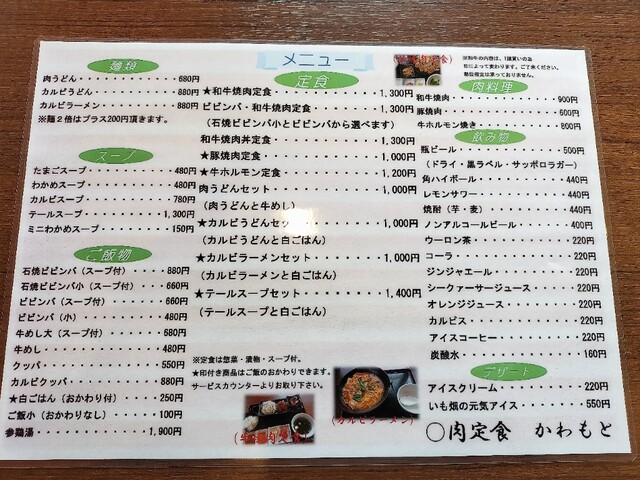 メニュー
麺類
肉うどん・・・・・・・・・・・680円
カルビうどん・・・・・・・・・880円
カルビラーメン・・・・・・・・880円
※麺2倍はプラス200円頂きます。
スープ
たまごスープ・・・・・・・・・480円
わかめスープ・・・・・・・・・480円
カルビスープ・・・・・・・・・780円
テールスープ・・・・・・・・1,300円
ミニわかめスープ・・・・・・・150円
ご飯物
石焼ビビンバ(スープ付)・・・・880円
石焼ビビンバ小(スープ付)・・・660円
ビビンバ(スープ付)・・・・・・660円
ビビンバ(小)・・・・・・・・・480円
牛めし大(スープ付)・・・・・・680円
牛めし・・・・・・・・・・・・480円
クッパ・・・・・・・・・・・・550円
カルビクッパ・・・・・・・・・880円
★白ごはん(おかわり付)・・・・250円
ご飯小(おかわりなし)・・・・・100円
参鶏湯・・・・・・・・・・・1,900円
定食
★和牛焼肉定食・・・・・・・・1,300円
ビビンバ・和牛焼肉定食・・・・1,300円
(石焼ビビンバ小とビビンバから選べます)
和牛焼肉丼定食・・・・・・・・1,300円
★豚焼肉定食・・・・・・・・・1,000円
★牛ホルモン定食・・・・・・・1,200円
肉うどんセット・・・・・・・・1,000円
(肉うどんと牛めし)
★カルビうどんセット・・・・・1,000円
(カルビうどんと白ごはん)
★カルビラーメンセット・・・・1,000円
(カルビラーメンと白ごはん)
★テールスープセット・・・・・1,400円
(テールスープと白ごはん)
※定食は惣菜・漬物・スープ付。
★印付き商品はご飯のおかわりできます。
サービスカウンターよりお取り下さい。
(カルビラーメン)
肉料理
和牛焼肉・・・・・・・・・・・900円
豚焼肉・・・・・・・・・・・・600円
牛ホルモン焼き・・・・・・・・800円
飲み物
瓶ビール・・・・・・・・・・・500円
(ドライ・黒ラベル・サッポロラガー)
角ハイボール・・・・・・・・・440円
レモンサワー・・・・・・・・・440円
焼酎(芋・麦)・・・・・・・・・440円
ノンアルコールビール・・・・・400円
ウーロン茶・・・・・・・・・・220円
コーラ・・・・・・・・・・・・220円
ジンジャエール・・・・・・・・220円
シークァーサージュース・・・・220円
オレンジジュース・・・・・・・220円
カルピス・・・・・・・・・・・220円
アイスコーヒー・・・・・・・・220円
炭酸水・・・・・・・・・・・・160円
デザート
アイスクリーム・・・・・・・・220円
いも畑の元気アイス・・・・・・550円
〇肉定食 かわもと